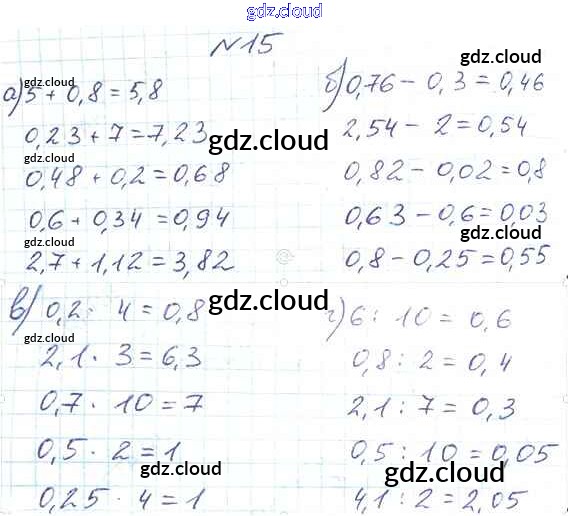 gdz.cloud
№15
gdz.cloud
gdz.cloud
а) 5 + 0,8 = 5,8
0,23 + 7 = 7,23
gdz.cloud
0,48 + 0,2 = 0,68
gdz.cloud
0,6 + 0,34 = 0,94
gdz.cloud
2,7 + 1,12 = 3,82
б) 0,76 - 0,3 = 0,46
2,54 - 2 = 0,54
0,82 - 0,02 = 0,8
0,63 - 0,6 = 0,03
gdz.cloud
0,8 - 0,25 = 0,55
в) 0,2 · 4 = 0,8
gdz.cloud
gdz.cloud
2,1 · 3 = 6,3
0,7 · 10 = 7
0,5 · 2 = 1
gdz.cloud
0,25 · 4 = 1
г) 6 : 10 = 0,6
0,8 : 2 = 0,4
2,1 : 7 = 0,3
0,5 : 10 = 0,05
gdz.cloud
4,1 : 2 = 2,05
gdz.cloud